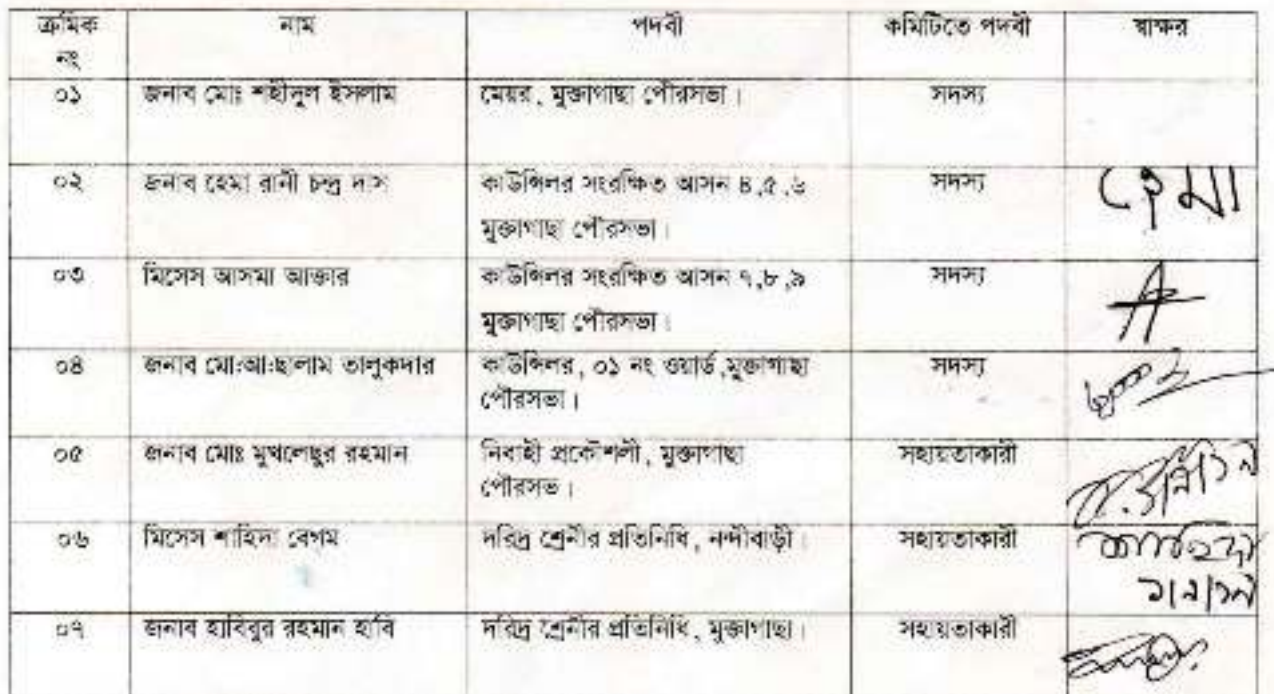 ক্রমিক নাম পদবী কমিটিতে পদবী স্বাক্ষর
নং
০১ জনাব মোঃ শহীদুল ইসলাম মেয়র, মুক্তাগাছা পৌরসভা। সদস্য
০২ জনাব হেমা রানী চন্দ্র দাস কাউন্সিলর সংরক্ষিত আসন ৪,৫,৬ সদস্য হেমা
মুক্তাগাছা পৌরসভা।
০৩ মিসেস আসমা আক্তার কাউন্সিলর সংরক্ষিত আসন ৭,৮,৯ সদস্য
মুক্তাগাছা পৌরসভা।
০৪ জনাব মো:আ:ছালাম তালুকদার কাউন্সিলর, ০১ নং ওয়ার্ড,মুক্তাগাছা সদস্য
পৌরসভা।
০৫ জনাব মোঃ মুখলেছুর রহমান নিবাহী প্রকৌশলী, মুক্তাগাছা সহায়তাকারী
পৌরসভ।
০৬ মিসেস শাহিদা বেগম দরিদ্র শ্রেনীর প্রতিনিধি, নন্দীবাড়ী। সহায়তাকারী
০৭ জনাব হাবিবুর রহমান হাবি দরিদ্র শ্রেনীর প্রতিনিধি, মুক্তাগাছা। সহায়তাকারী